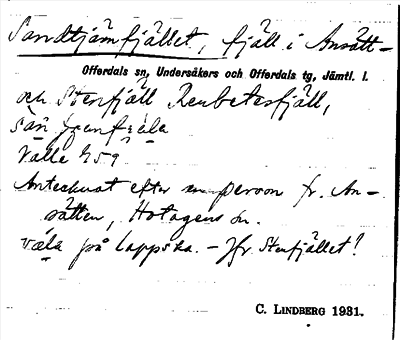 Sandtjärnfjället, fjäll i Ansätt-
Offerdals sn, Undersåkers och Offerdals tg, Jämtl. l.
och Stenfjäll Renbetesfjäll,
Välle 759
Antecknat efter person fr. An-
sätten, Hotagens sn.
på lappska. – Jfr Stenfjället!
C. LINDBERG 1931.